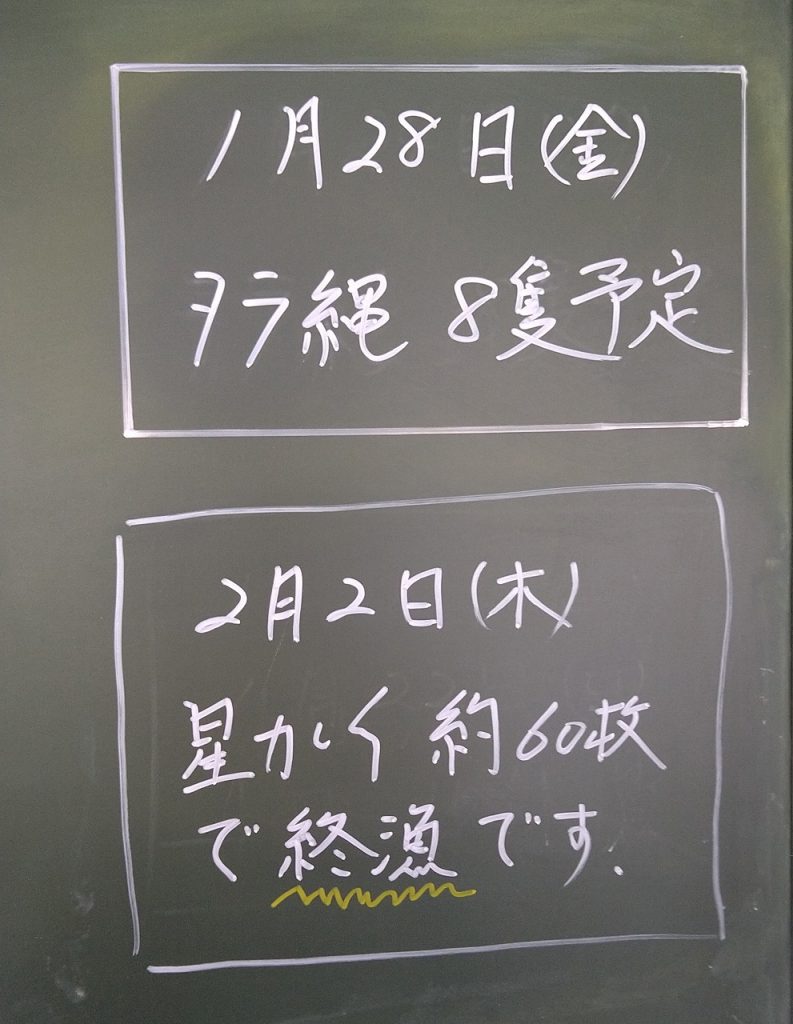 1月28日(金)
タラ縄 8隻予定
2月2日(木)
星かく 約60枚
で終漁です.